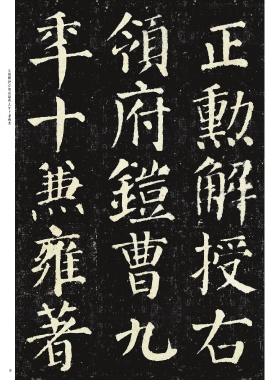 正勳解授右
領府鎧曹九
年十兼雍著